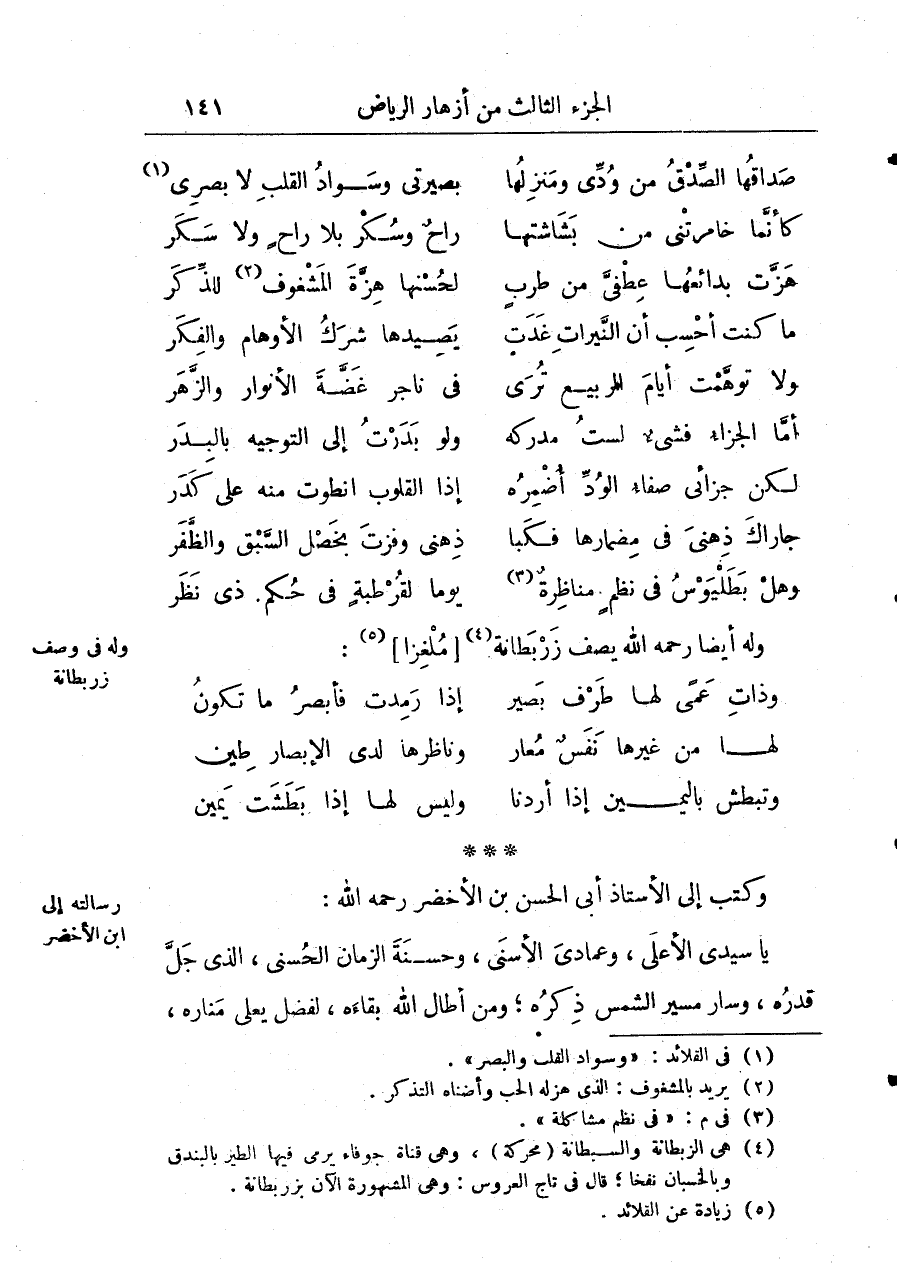 الجزء الثالث من أزهار الرياض ١٤١
صَداقُها الصِّدْقُ من وُدِّى ومَنزِلُها بصيرتى وسَـوادُ القلبِ لا بصرِى (١)
كأنَّما خامرتْنى من بَشَاشتهـا راحٌ وسُكْر بلا راحٍ ولا سَكَر
هَزَّت بدائعُهـا عِطْفىَّ من طربٍ لحُسْنها هِزَّةَ المَشْغوف(٢) للذِّكَر
ما كنت أحْسِب أن النَّيراتِ غَدَتِ يَصِـيدها شرَكُ الأوهام والفِكَر
ولا توهَّمْت أيامَ الربيع تُرَى فى ناجر غَضَّـةَ الأنوار والزَّهَر
أمَّا الجزاء فشىء لستُ مدركه ولو بَدَرْتُ إلى التوجيه بالبِدَر
لـكن جزائى صفاء الوُدِّ أُضْمِرُه إذا القلوب انطوت منه على كَدَر
جاراكَ ذِهنىَ فى مِضمارها فـكَبا ذِهنى وفزتَ بخَصْل السَّبْق والظَّفَر
وهلْ بَطَلْيَوْسُ فى نظمٍ مناظِرةٌ(٣) يوما لقُرْطبةٍ فى حُكم ذى نَظَر
وله أيضا رحمه الله يصف زَرْبَطانة(٤) [مُلْغِزا](٥) :
وله فى وصف
زربطانة
وذاتِ عَمًى لهـا طَرْف بَصير إذا رَمِدت فأبصرُ ما تكونُ
لهـــا من غيرها نَفَسٌ مُعار وناظرها لدى الإبصار طين
وتبطش باليمــين إذا أردنا وليس لهـا إذا بَطَشَت يَمين
***
وكتب إلى الأستاذ أبى الحسن بن الأخضر رحمه الله :
رسالته إلى
ابن الأخضر
يا سيدى الأعلَى ، وعمادىَ الأسنَى ، وحسـنَةَ الزمان الحُسنى ، الذى جَلَّ
قدرُه ، وسار مسير الشمس ذِكرُه ؛ ومن أطال الله بقاءَه ، لفضل يعلى مَناره ،
(١) فى القلائد : «وسواد القلب والبصر» .
(٢) يريد بالمشغوف : الذى هزله الحب وأضناه التذكر .
(٣) فى م : « فى نظم مشاكلة » .
(٤) هى الزبطانة والسـبطانة (محركة) ، وهى قناة جوفاء يرمى فيها الطير بالبندق
وبالحسبان نفخا ؛ قال فى تاج العروس : وهى المشهورة الآن بزربطانة .
(٥) زيادة عن القلائد .